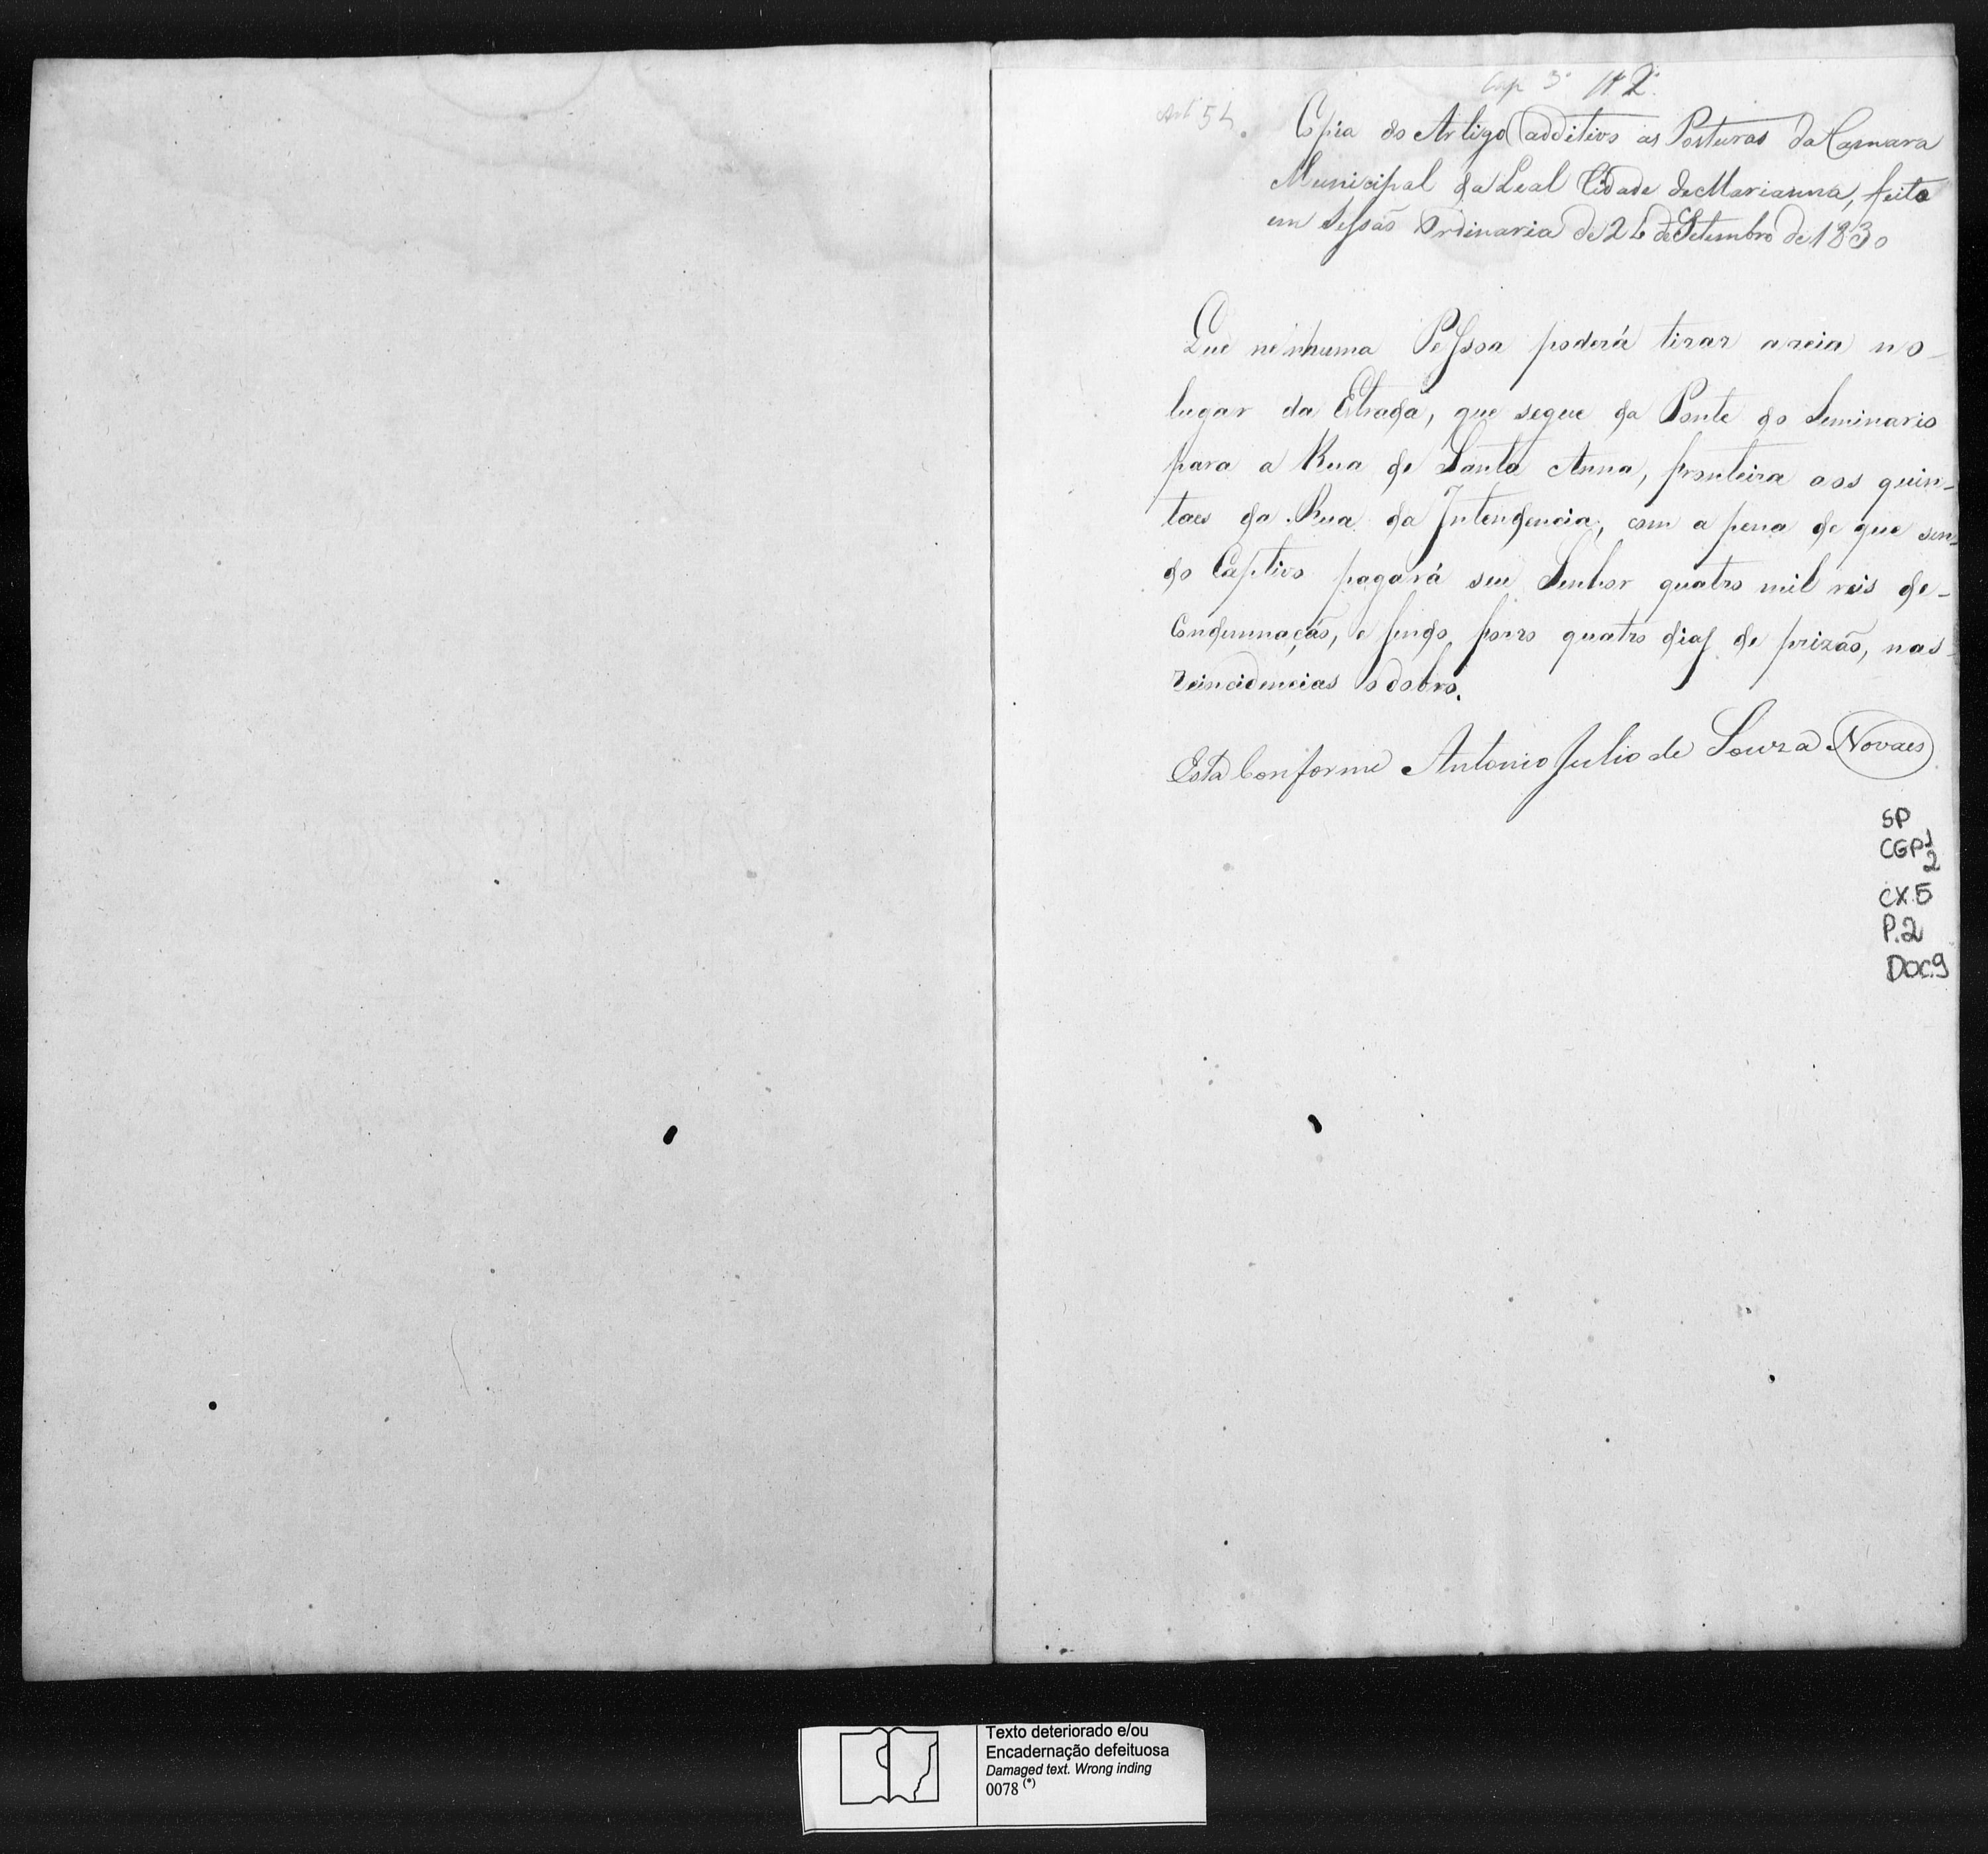 Cap 3º Nº 2º
Artº 54.
Copia do Artigo additivo as Posturas da Camara
Municipal da Leal Cidade de Marianna, feito
em Sessão Ordinaria de 26 de Setembro de 1830
Que nenhuma Pessoa poderá tirar areia no-
lugar da Etrada, que segue da Ponte do Seminario
para a Rua de Santa Anna, fronteira aos quin-
taes da Rua da Intendencia, com a pena de que sen-
do Captivo pagará seu Senhor quatro mil reis de-
Condemnação, e sendo forro quatro dias de prizão, nas-
reincidencias o dobro.
Esta Conforme Antonio Julio de Souza Novaes
SP
CGP 1/2
CX.5
P.2
DOC.9
Texto deteriorado e/ou
Encadernação defeituosa
Damaged text. Wrong inding
0078 (*)